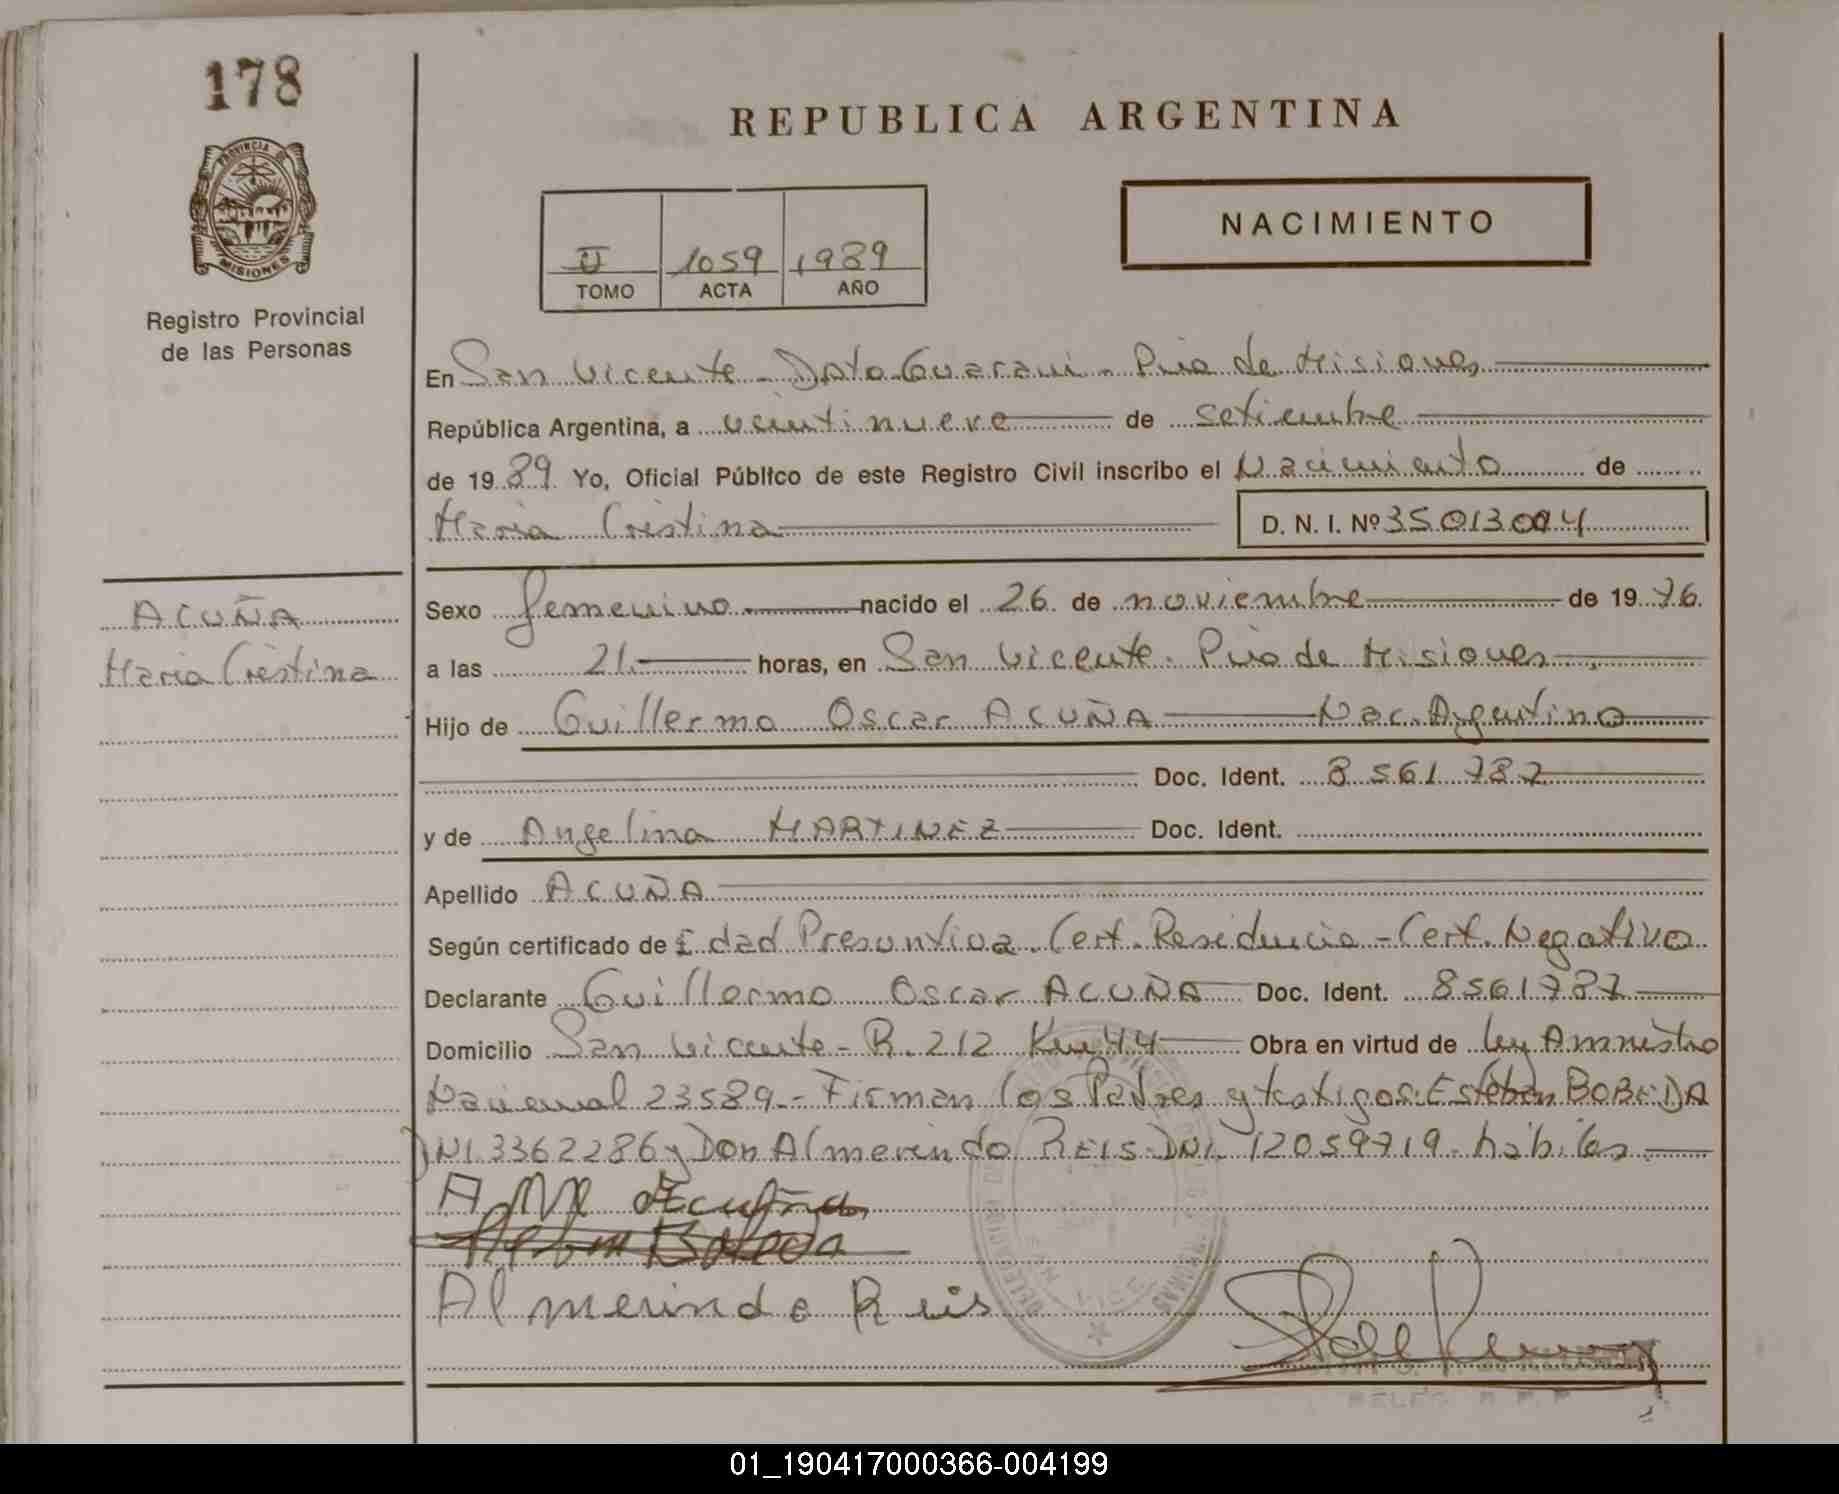 178
REPUBLICA ARGENTINA
PROVINCIA DE
MISIONES
Registro Provincial
de las Personas
NACIMIENTO
II 1059 1989
TOMO ACTA AÑO
En San Vicente - Dpto Guarani - Pcia de Misiones
República Argentina, a veintinueve de setiembre
de 1989 Yo, Oficial Público de este Registro Civil inscribo el Nacimiento de
Maria Cristina D. N. I. Nº 35013004
ACUÑA
Maria Cristina
Sexo femenino nacido el 26 de noviembre de 1976
a las 21 horas, en San Vicente. Pcia de Misiones
Hijo de Guillermo Oscar ACUÑA Nac. Argentino
Doc. Ident. 8561787
y de Angelina MARTINEZ Doc. Ident.
Apellido ACUÑA
Según certificado de Edad Presuntiva. Cert. Residencia - Cert. Negativo
Declarante Guillermo Oscar ACUÑA Doc. Ident. 8561787
Domicilio San Vicente - R. 212 Km 44 Obra en virtud de Ley Amnistia
Nacional 23589 - Firman los Padres y testigos: Esteban BOBEDA
DNI 3362286 y Don Almerindo REIS. DNI. 12059719. hábiles.
A M Acuña
Almerindo Reis
01_190417000366-004199